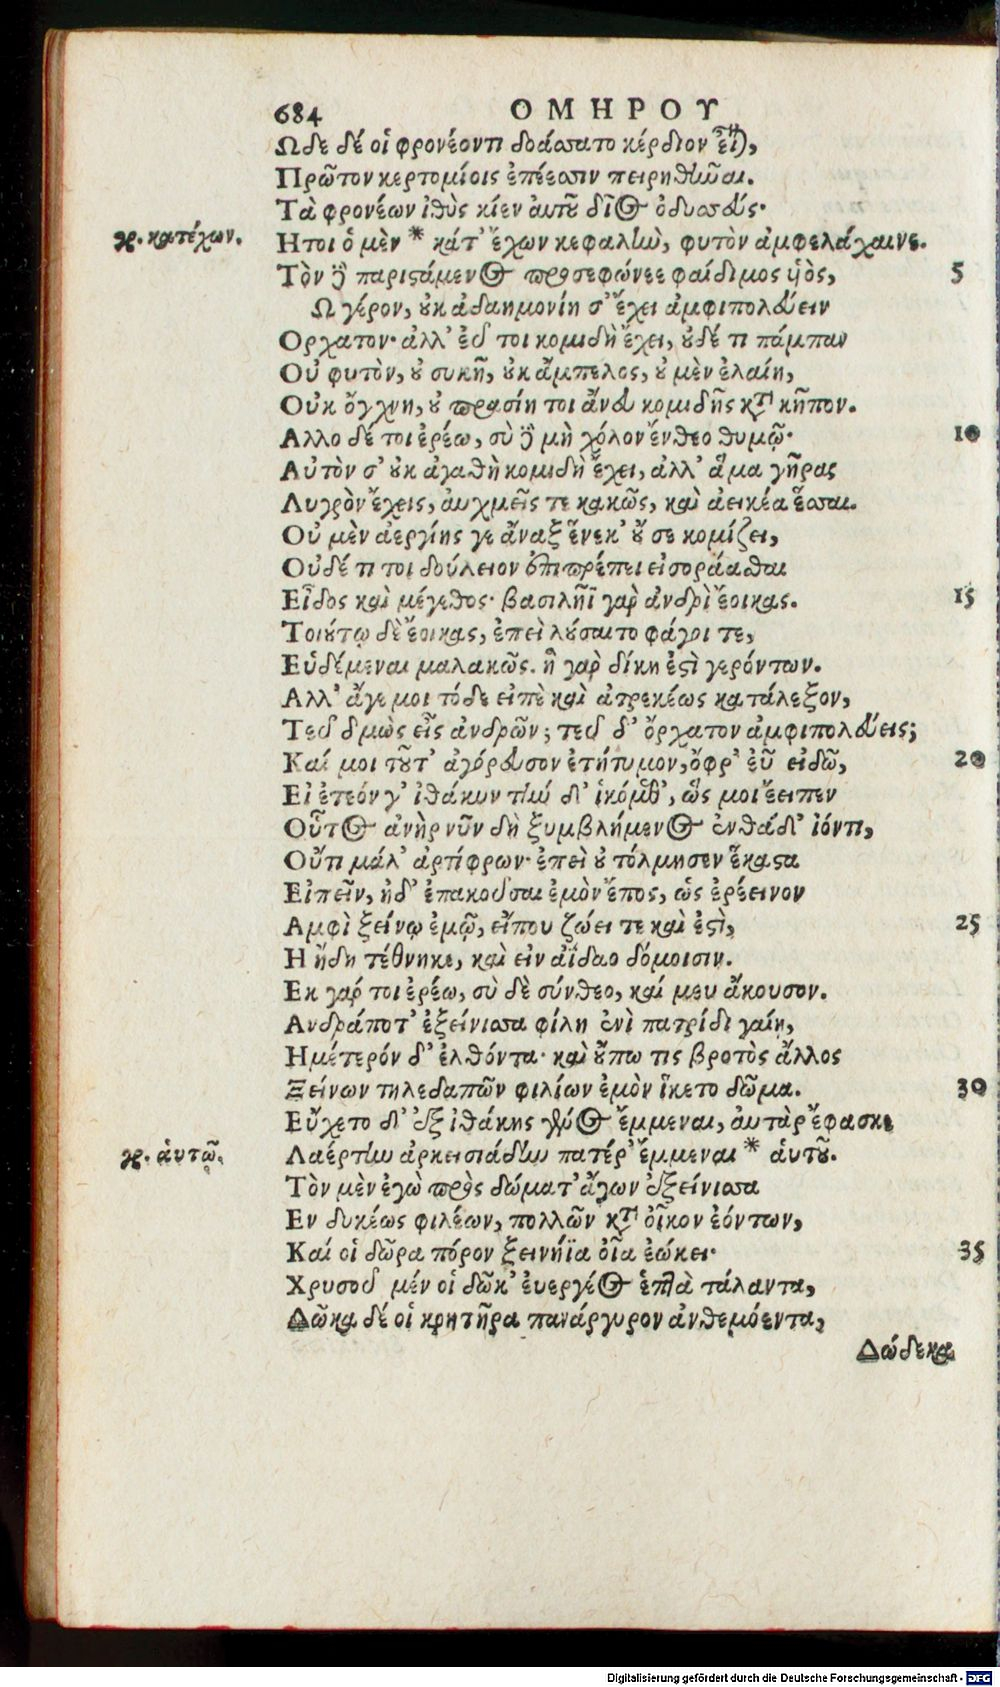 684 ΟΜΗΡΟΥ
Ωδε δέ οἱ φρονέοντι δοάσατο κέρδιον εἶναι,
Πρῶτον κερτομίοις ἐπέεσσιν πειρηθῆναι.
Τὰ φρονέων ἰθὺς κίεν αὐτοῦ δῖος ὀδυσσεύς·
γρ. κατέχων. Ητοι ὁ μὲν * κάτ' ἔχων κεφαλὴν, φυτὸν ἀμφελάχαινε.
Τὸν δὲ παριστάμενος προσεφώνεε φαίδιμος υἱὸς, 5
Ω γέρον, οὐκ ἀδαημονίη σ' ἔχει ἀμφιπολεύειν
Ορχατον· ἀλλ' εὖ τοι κομιδὴ ἔχει, οὐδέ τι πάμπαν
Οὐ φυτὸν, οὐ συκῆ, οὐκ ἄμπελος, οὐ μὲν ἐλαίη,
Οὐκ ὄγχνη, οὐ πρασίη τοι ἄνευ κομιδῆς κατὰ κῆπον.
Αλλο δέ τοι ἐρέω, σὺ δὲ μὴ χόλον ἔνθεο θυμῷ· 10
Αὐτὸν σ' οὐκ ἀγαθὴ κομιδὴ ἔχει, ἀλλ' ἅμα γῆρας
Λυγρὸν ἔχεις, αὐχμεῖς τε κακῶς, καὶ ἀεικέα ἕσσαι.
Οὐ μὲν ἀεργίης γε ἄναξ ἕνεκ' οὔ σε κομίζει,
Οὐδέ τι τοι δούλειον ἐπιπρέπει εἰσοράασθαι
Εἶδος καὶ μέγεθος· βασιλῆϊ γὰρ ἀνδρὶ ἔοικας. 15
Τοιούτῳ δὲ ἔοικας, ἐπεὶ λούσαιτο φάγοι τε,
Εὑδέμεναι μαλακῶς. ἣ γὰρ δίκη ἐστὶ γερόντων.
Αλλ' ἄγε μοι τόδε εἰπὲ καὶ ἀτρεκέως κατάλεξον,
Τεῦ δμὼς εἶς ἀνδρῶν; τεῦ δ' ὄρχατον ἀμφιπολεύεις;
Καί μοι τοῦτ' ἀγόρευσον ἐτήτυμον, ὄφρ' ἐῢ εἰδῶ, 20
Εἰ ἐτεόν γ' ἰθάκην τὴν δ' ἱκόμεθ', ὥς μοι ἔειπεν
Οὗτος ἀνὴρ νῦν δὴ ξυμβλήμενος ἐνθάδ' ἰόντι,
Οὔτι μάλ' ἀρτίφρων· ἐπεὶ οὐ τόλμησεν ἕκαστα
Εἰπεῖν, ἠδ' ἐπακοῦσαι ἐμὸν ἔπος, ὡς ἐρέεινον
Αμφὶ ξείνῳ ἐμῷ, εἴπου ζώει τε καὶ ἐστὶ, 25
Η ἤδη τέθνηκε, καὶ εἰν ἀΐδαο δόμοισιν.
Εκ γάρ τοι ἐρέω, σὺ δὲ σύνθεο, καί μευ ἄκουσον.
Ανδράποτ' ἐξείνισσα φίλη ἐνὶ πατρίδι γαίη,
Ημέτερόν δ' ἐλθόντα· καὶ οὔπω τις βροτὸς ἄλλος
Ξείνων τηλεδαπῶν φιλίων ἐμὸν ἵκετο δῶμα. 30
Εὔχετο δ' ἐξ ἰθάκης γένος ἔμμεναι, αὐτὰρ ἔφασκε
γρ. αὑτῷ. Λαέρτην ἀρκεισιάδην πατέρ' ἔμμεναι * αὑτοῦ.
Τὸν μὲν ἐγὼ πρὸς δώματ' ἄγων ἐξείνισσα
Εν δυκέως φιλέων, πολλῶν κατὰ οἶκον ἐόντων,
Καί οἱ δῶρα πόρον ξεινήϊα οἷα ἐώκει· 35
Χρυσοῦ μέν οἱ δῶκ' εὐεργέος ἑπτὰ τάλαντα,
Δῶκα δέ οἱ κρητῆρα πανάργυρον ἀνθεμόεντα,
Δώδεκα
Digitalisierung gefördert durch die Deutsche Forschungsgemeinschaft - DFG